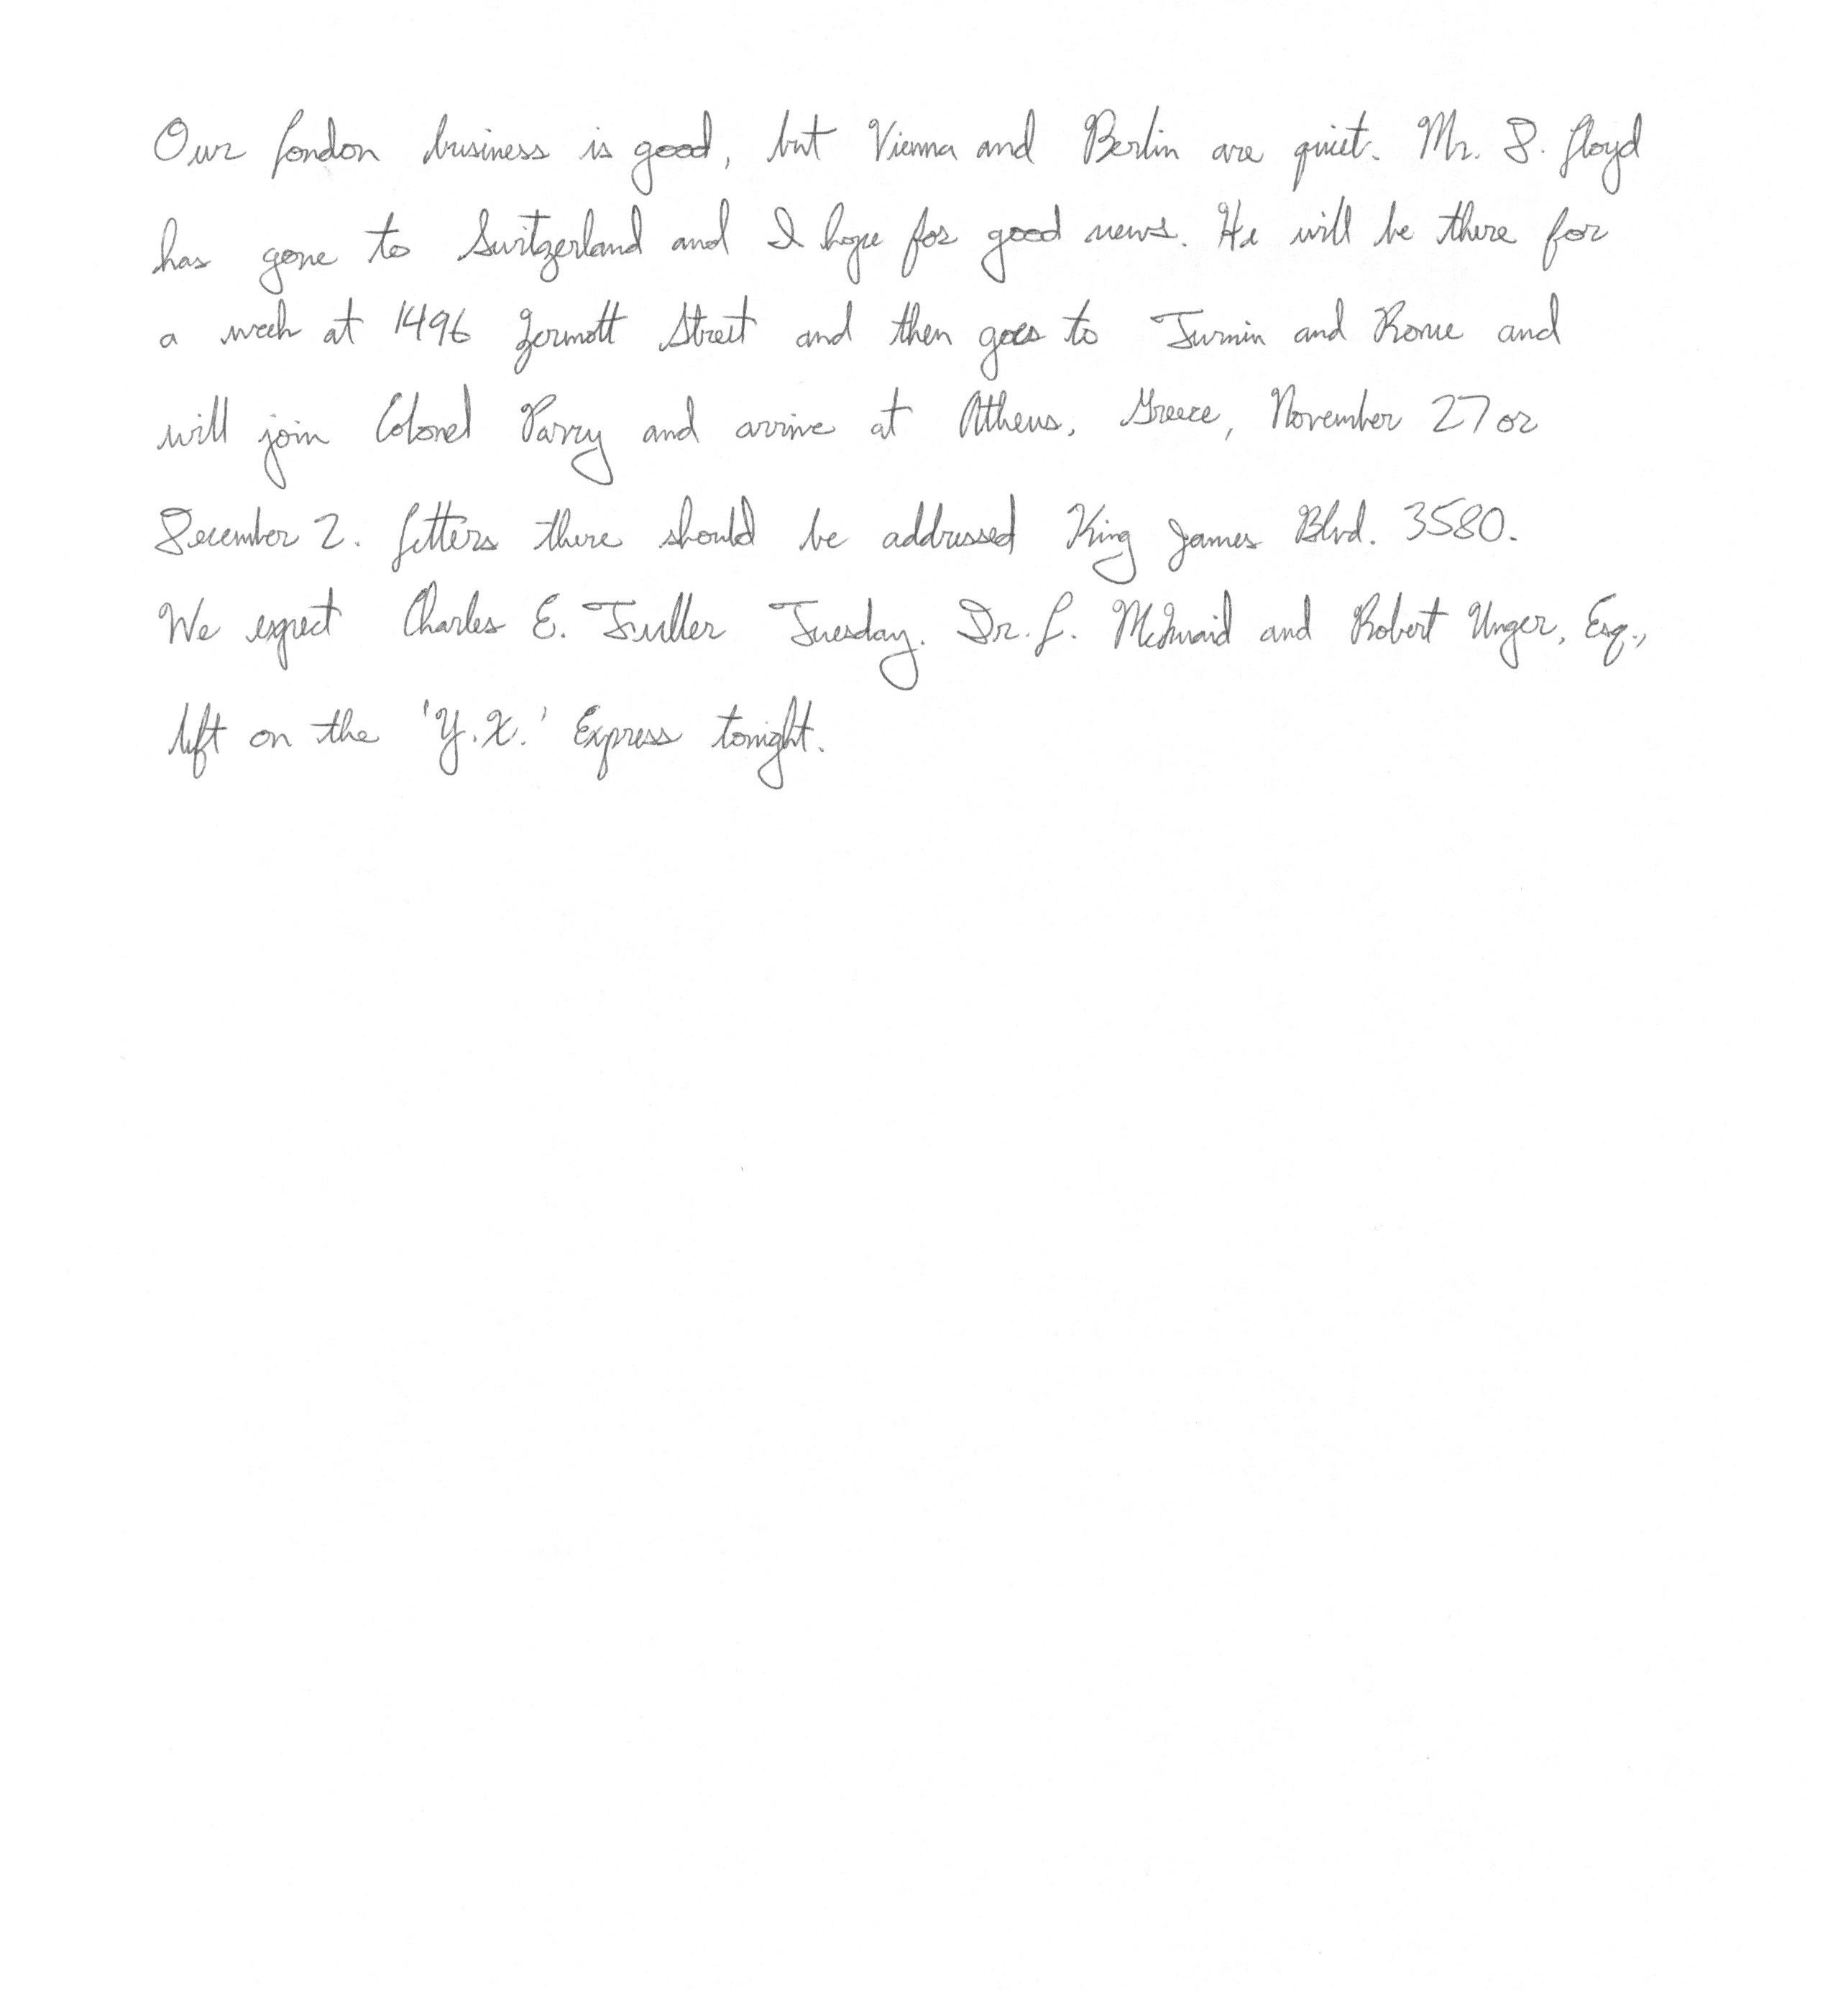 Our London business is good, but Vienna and Berlin are quiet. Mr. D. Lloyd
has gone to Switzerland and I hope for good news. He will be there for
a week at 1496 Zermott Street and then goes to Turnin and Rome and
will join Colonel Parry and arrive at Athens, Greece, November 27 or
December 2. Letters there should be addressed King James Blvd. 3580.
We expect Charles E. Fuller Tuesday. Dr. L. McQuaid and Robert Unger, Esq.,
left on the 'Y.X.' Express tonight.